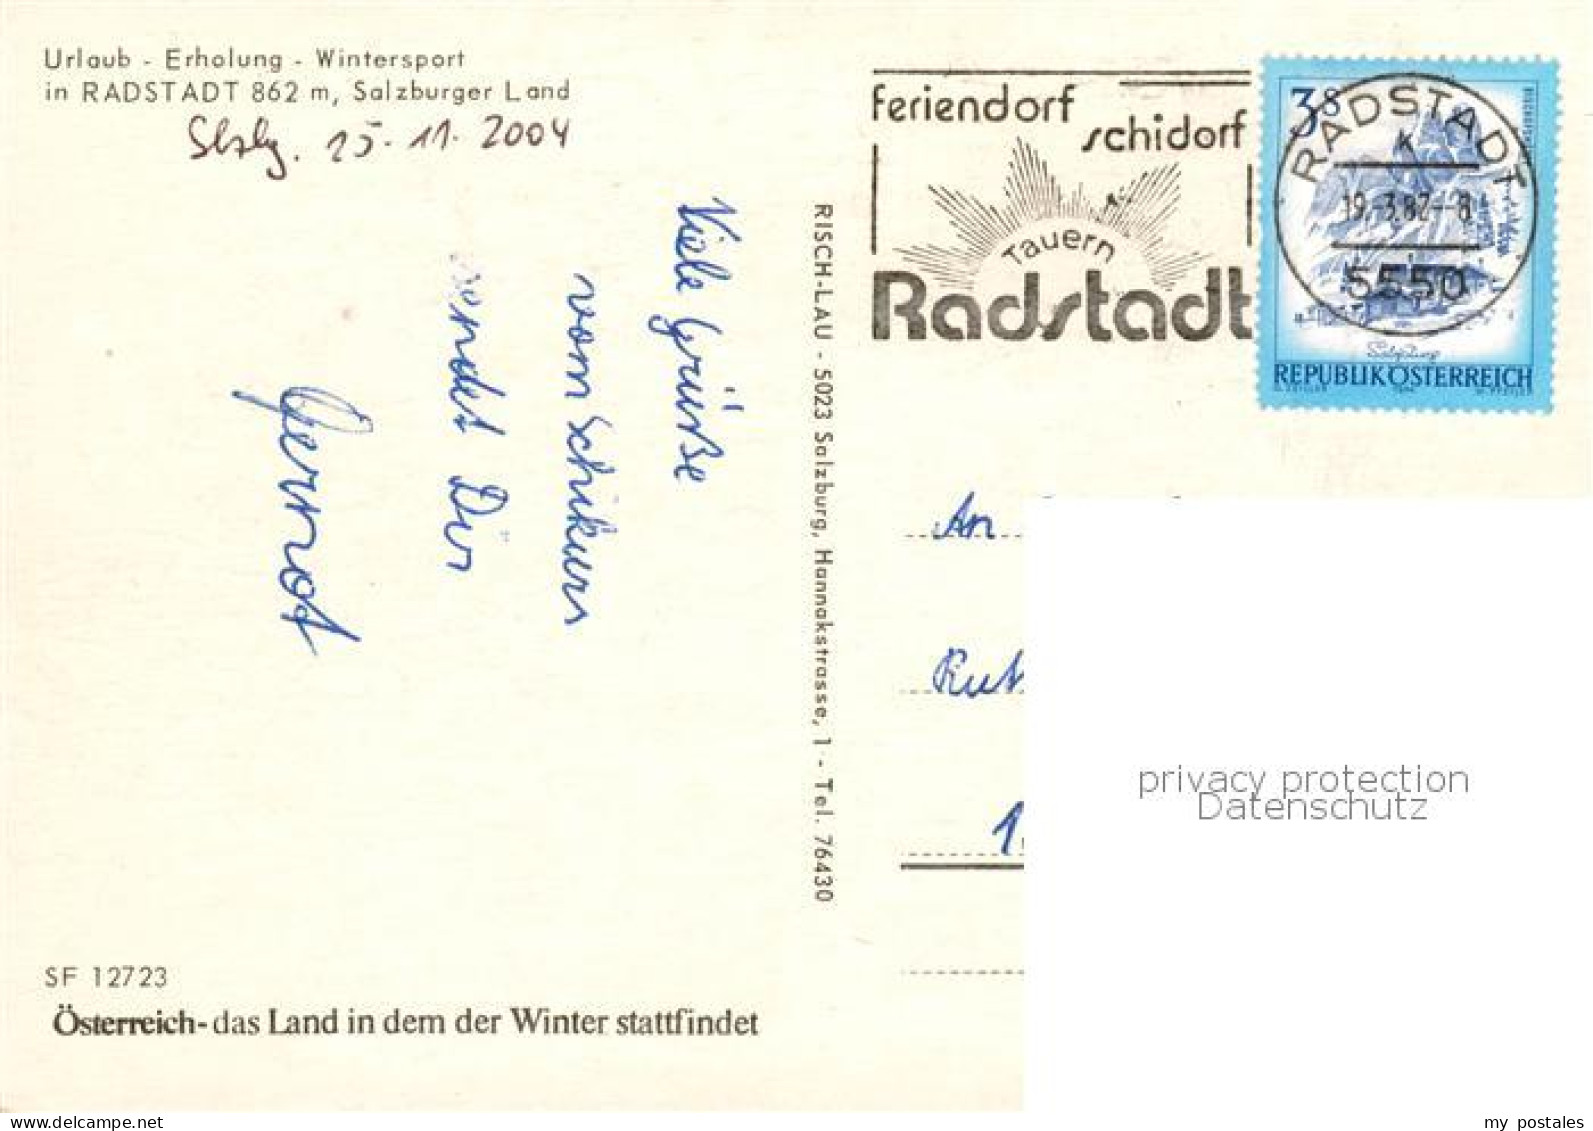 Urlaub - Erholung - Wintersport
in RADSTADT 862 m, Salzburger Land
25. 11. 2004
Viele Grüße
vom Schikurs
sendet Dir
Gernot
SF 12723
Österreich - das Land in dem der Winter stattfindet
RISCH-LAU - 5023 Salzburg, Hannakstrasse, 1 - Tel. 76430
feriendorf
schidorf
Tauern
Radstadt
3S
Salzburg
REPUBLIK ÖSTERREICH
RADSTADT
19.-3.82--8
5550
An
privacy protection
Datenschutz
my postales